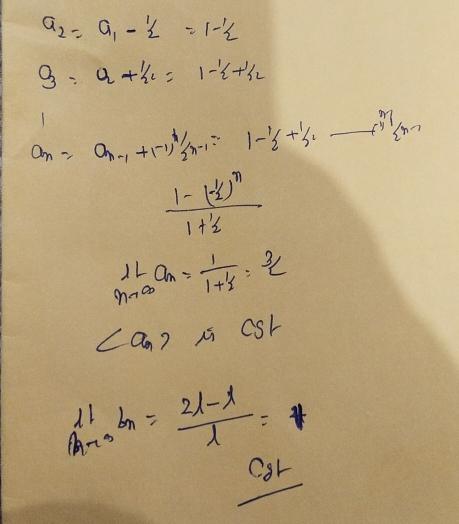 a₂ = a₁ - ½ = 1-½
a₃ = a₂ + ½² = 1-½+½²
|
aₙ = aₙ₋₁ + (-1)ⁿ⁻¹/2ⁿ⁻¹ = 1-½+½² — (-1)ⁿ⁻¹/2ⁿ⁻¹
1-(-½)ⁿ
1+½
lt aₙ = 1/(1+½) = 3/2
n→∞
<aₙ> is cgt
lt bₙ = (2l-l)/l =
n→∞
Cgt